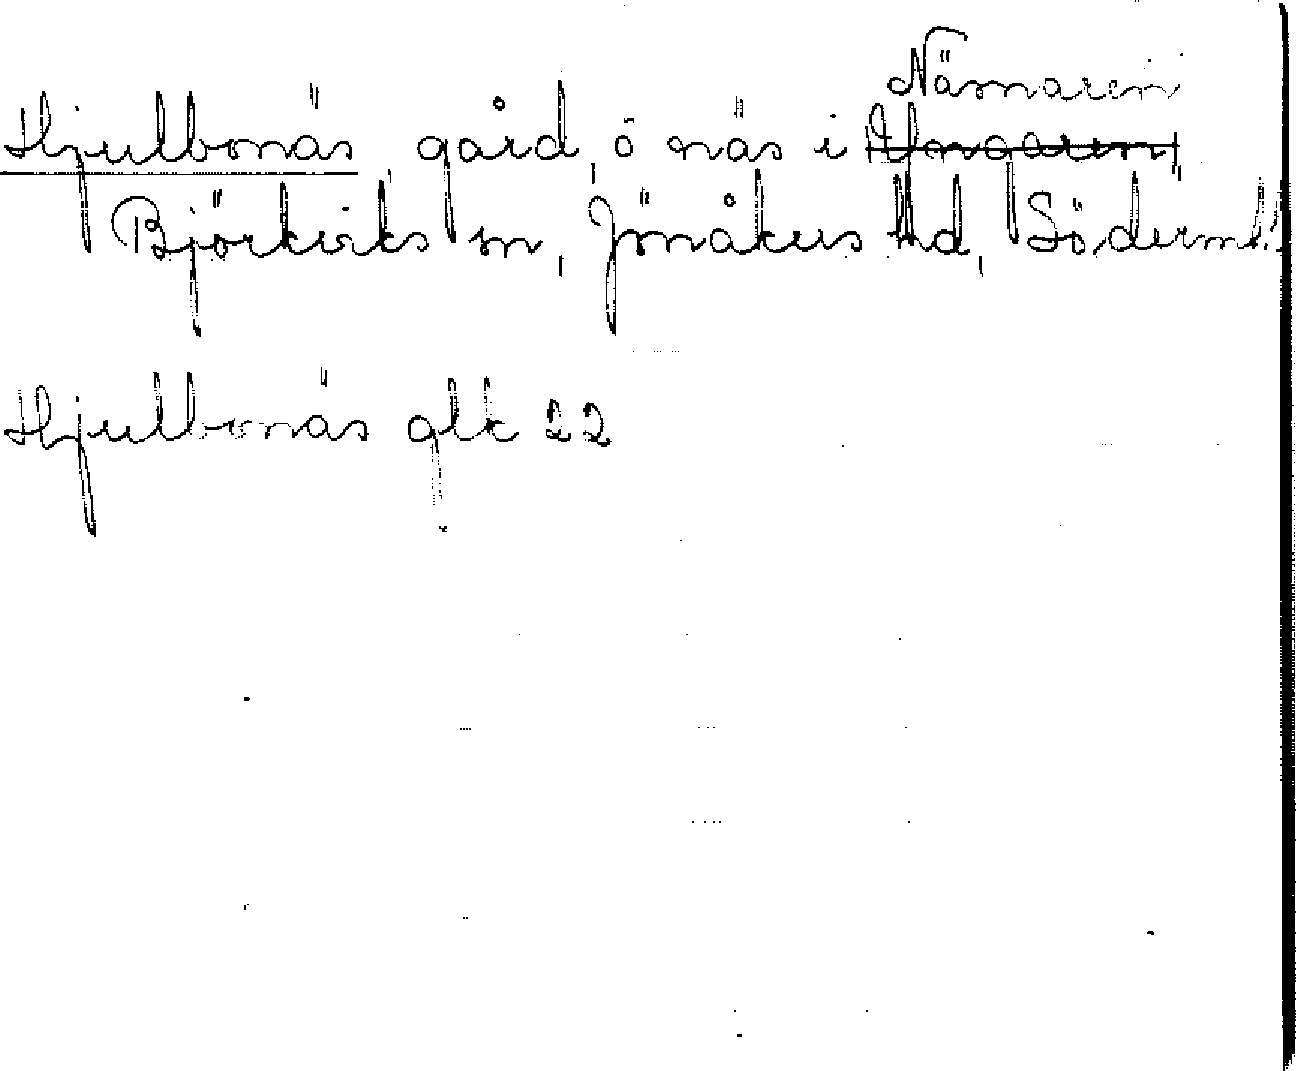 Nämaren
Hjulbonäs gård, ö näs i Yngaren,
Björkviks sn, Jönåkers hd, Söderml.
Hjulbonäs glk 22